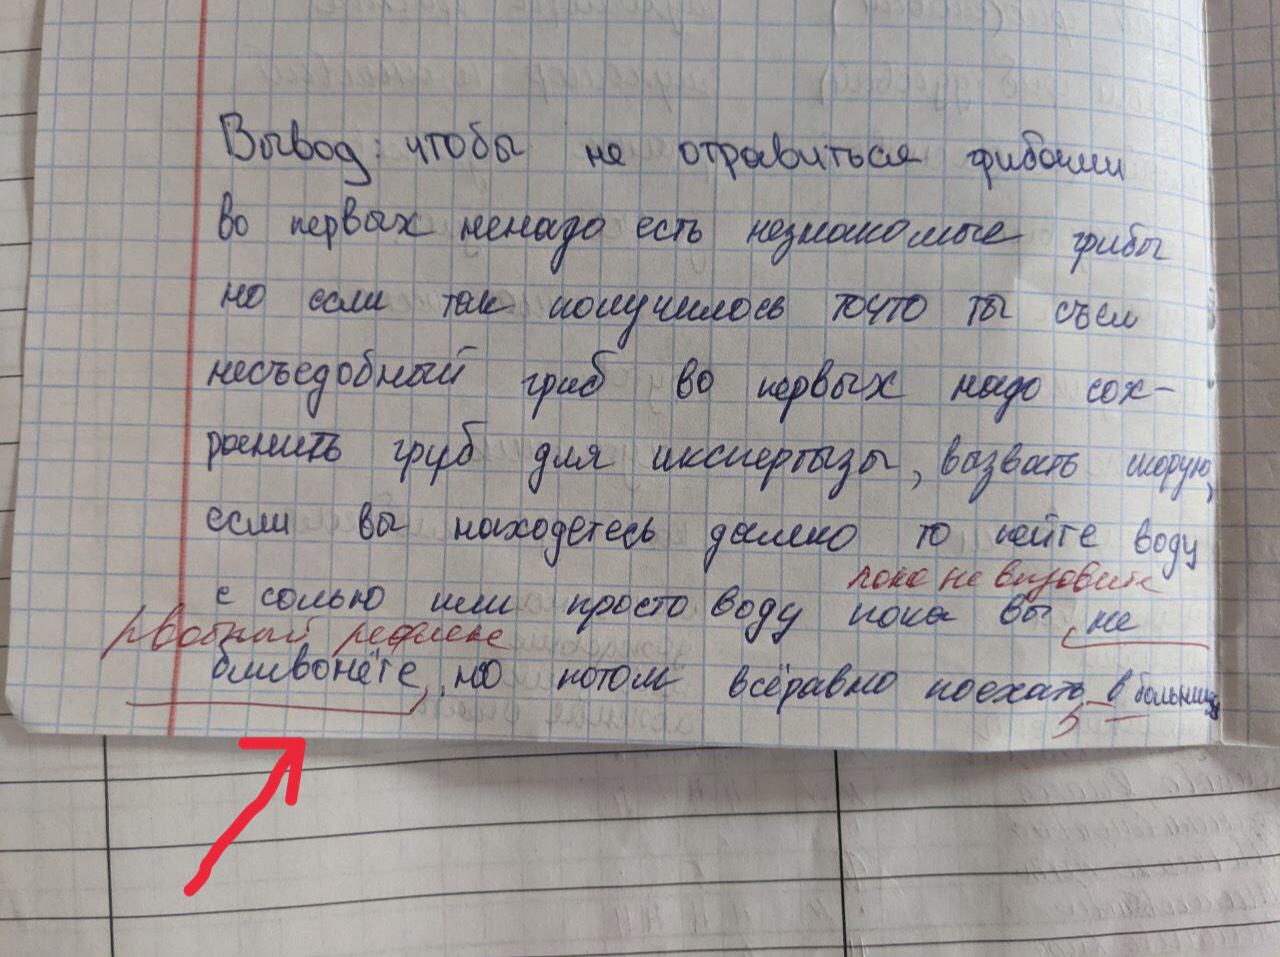 Вывод: чтобы не отравиться грибами
во первых ненадо есть незнакомые грибы
но если так получилось точто ты съел
несъедобный гриб во первых надо сох-
ранить груб для икспертызы, вызвать скорую,
если вы находетесь далеко то пейте воду
пока не вызовите
с солью или просто воду пока вы не
рвотный рефлекс
бливонёте, но потом всёравно поехать в больницу
5